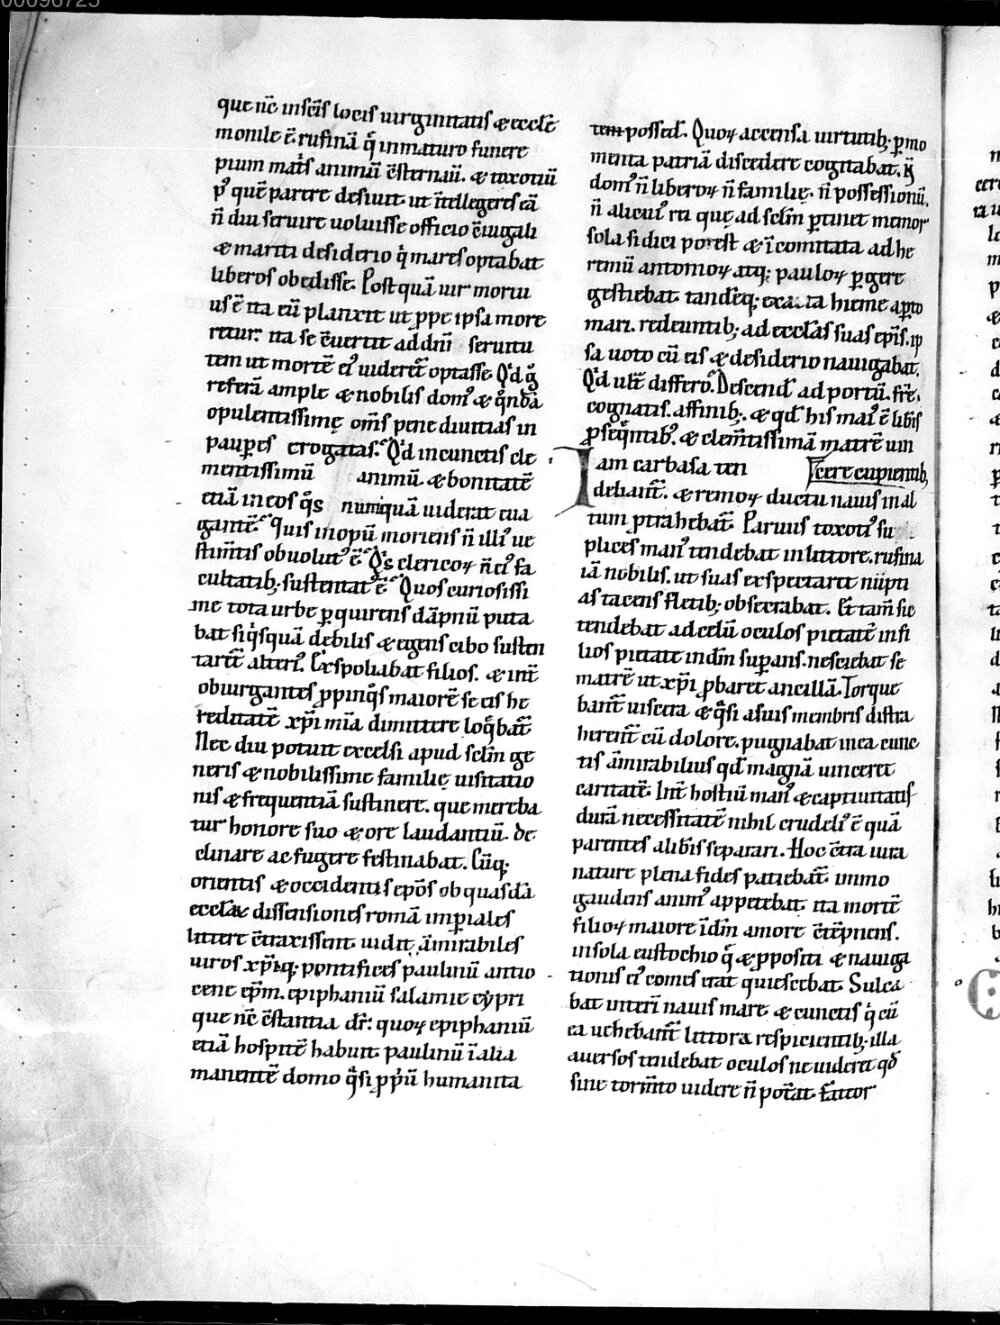 00096725
que nc̄ in scīs locis uirginitatis & eccle
monile ē. rufinā q̄ inmaturo funere
pium mat̄s animū c̄sternauī. & toxotiū
p⁹ quē parere desiuit. ut īntellegeres eā
n̄ diu seruire uoluisse officio c̄iugali
& mariti desiderio q̇ mares optabat
liberos obedisse. Post quā uir mortu
us ē ita eū planxit ut ꝓpe ipsa more
retur. ita se c̄uertit ad dn̄i seruitu
tem ut mortē ei⁹ uideret̄ optasse. Qd̄ g̊
referā ample & nobilis dom⁹ & q̄ndā
opulentissimę om̄s pene diuitias in
pauꝑes erogatas. Qd̄ in cunctis cle
mentissimū animū & bonitatē
etiā in eos q̊s numquā uiderat eua
gantē. Quis inopū moriens n̄ illi⁹ ue
stim̄tis obuolut⁹ ē. Qs̄ clericoꝝ n̄ ei⁹ fa
cultatib; sustentat⁹ ē. Quos curiosissi
me tota urbe ꝑquirens dāpnū puta
bat siq̇squā debilis & egens cibo susten
taret̄ alteri⁹. Exspoliabat filios. & int̄
obiurgantes ꝓpinq̊s maiorē se eis he
reditatē xp̄i mīa dimittere loq̄bat̄.
Nec diu potuit excelsi apud sc̄lm ge
neris & nobilissime familię uisitatio
nis & frequentiā sustinere. que mereba
tur honore suo & ore laudantiū. de
clinare ac fugere festinabat. Cūq;
orientis & occidentis epo̅s ob quasdā
ecclae dissensiones romā imꝑiales
littere c̄traxissent. uidit āmirabiles
uiros xp̄iq; pontifices paulinū antio
cene ep̄m. epiphaniū salamie cypri
que nc̄ c̄stantia dr̄: quoꝝ epiphaniū
etiā hospitē habuit. paulinū ī alia
manentē domo q̄si ꝓp̄ū humanita
tem possed⁹. Quoꝝ accensa uirtutib; ꝑ mo
menta patriā discedere cogitabat. N̄
dom⁹ n̄ liberoꝝ n̄ familię. n̄ possessionū.
n̄ alicui⁹ rei quę ad sc̄lm ꝑtinet memor
sola si dici potest & īcomitata ad he
remū antonioꝝ atq; pauloꝝ ꝑgere
gestiebat. tandēq; exacta hieme aꝑto
mari. redeuntib; ad ecclas suas epis. ip
sa uoto cū eis & desiderio nauigabat.
Qd̄ ult̄ differo. Descend⁹ ad portū. fr̄e.
cognatis. affinib;. & qd̄ his mai⁹ ē libis
ꝓseq̄ntib⁹. & clem̄tissimā matrē uin
Iam carbasa ten cere cupientib;
debant̄. & remoꝝ ductu nauis in al
tum ꝓtrahebat̄. Paruus toxoti⁹ su
plices man⁹ tendebat in littore. rufina
iā nobilis. ut suas exspectaret nūpti
as tacens fletib; obsecrabat. Et tam̄ sic
tendebat ad celū oculos pietatē in fi
lios pietate in dm̄ suꝑans. nesciebat se
matrē ut xp̄i ꝓbaret ancillā. Torque
bant̄ uiscera & q̄si a suis membris distra
heret̄ cū dolore. pugnabat in ea cunc
tis āmirabilius qd̄ magnā uinceret
caritatē. Int̄ hostiū man⁹ & captiuitatis
durā necessitatē nihil crudeli⁹ ē quā
parentes a libis separari. Hoc c̄tra iura
nature plena fides patiebat̄. immo
gaudens anim⁹ appetebat. ita mortē
filioꝝ maiore ī dm̄ amore c̄tēpnens.
in sola eustochio q̄ & ꝓpositi & nauiga
tionis ei⁹ comes erat quiescebat. Sulca
bat interī nauis mare. & cunctis q̇ cū
ea uehebant̄ littora respicientib; illa
auersos tendebat oculos ne uideret qd̄
sine torm̄to uidere n̄ pot̄at. Fat̄tor